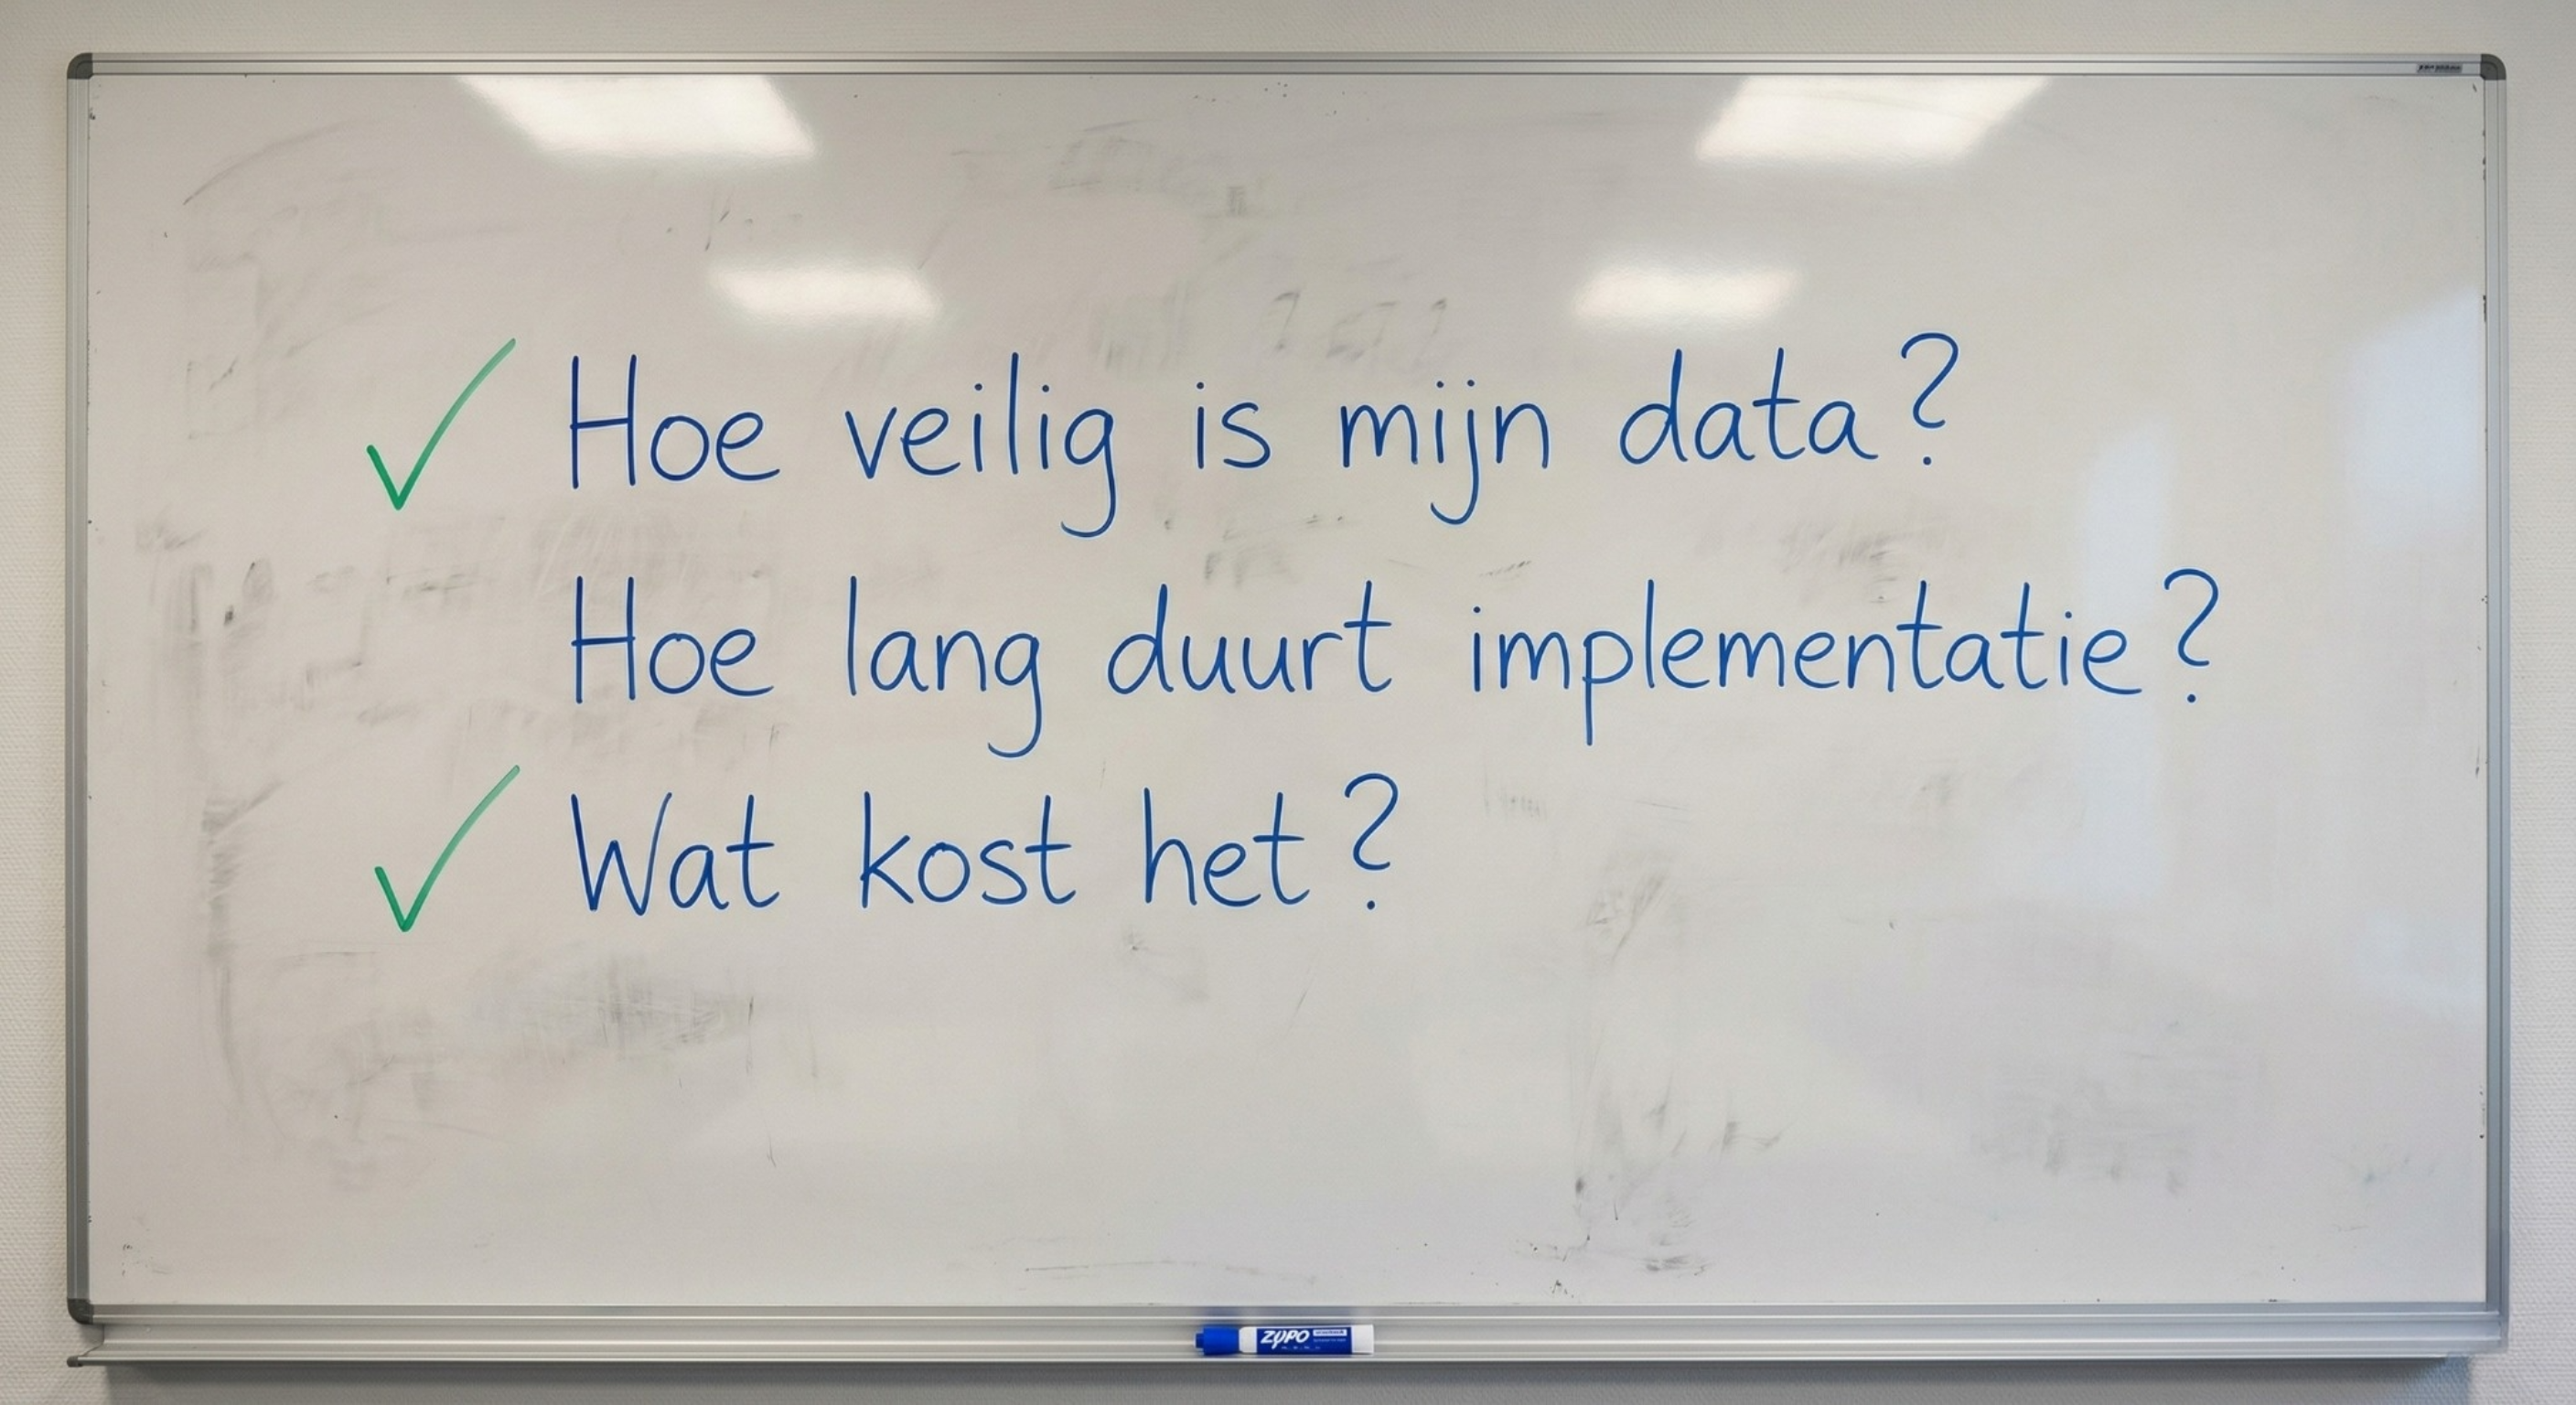 ✓ Hoe veilig is mijn data?
Hoe lang duurt implementatie?
✓ Wat kost het?
ZYPO